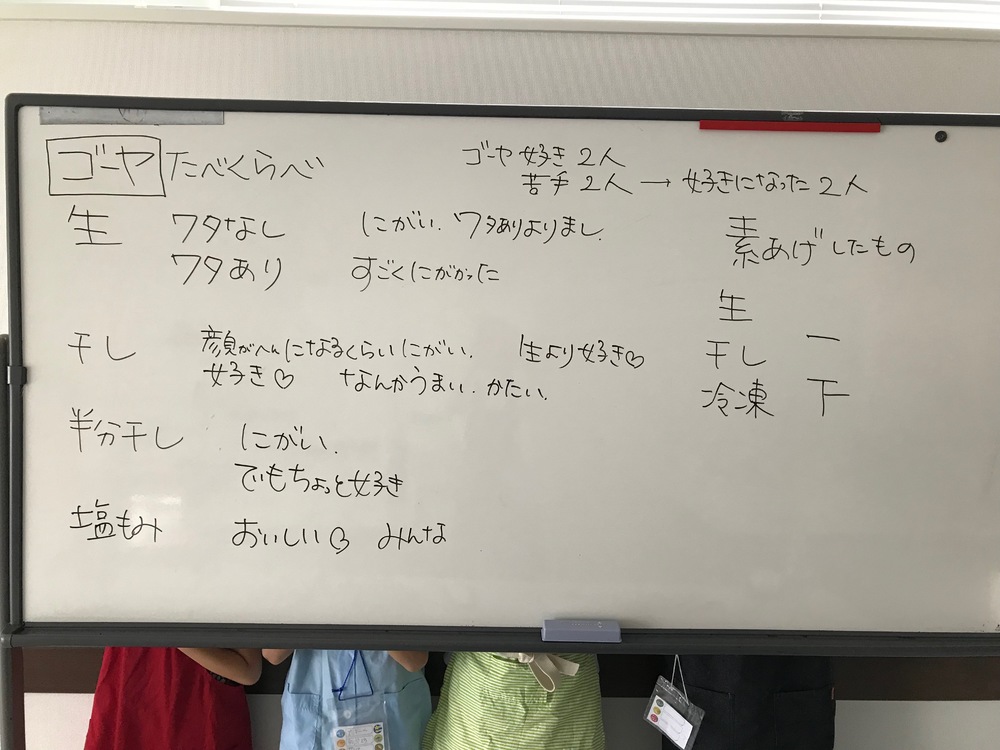 ゴーヤ たべくらべ
ゴーヤ 好き 2人
苦手 2人 → 好きになった 2人
生 ワタなし にがい. ワタありよりまし.
ワタあり すごくにがかった
干し 顔がへんになるくらいにがい. 生より好き♡
好き♡ なんかうまい. かたい.
半分干し にがい.
でもちょっと好き
塩もみ おいしい♡ みんな
素あげしたもの
生
干し 一
冷凍 下